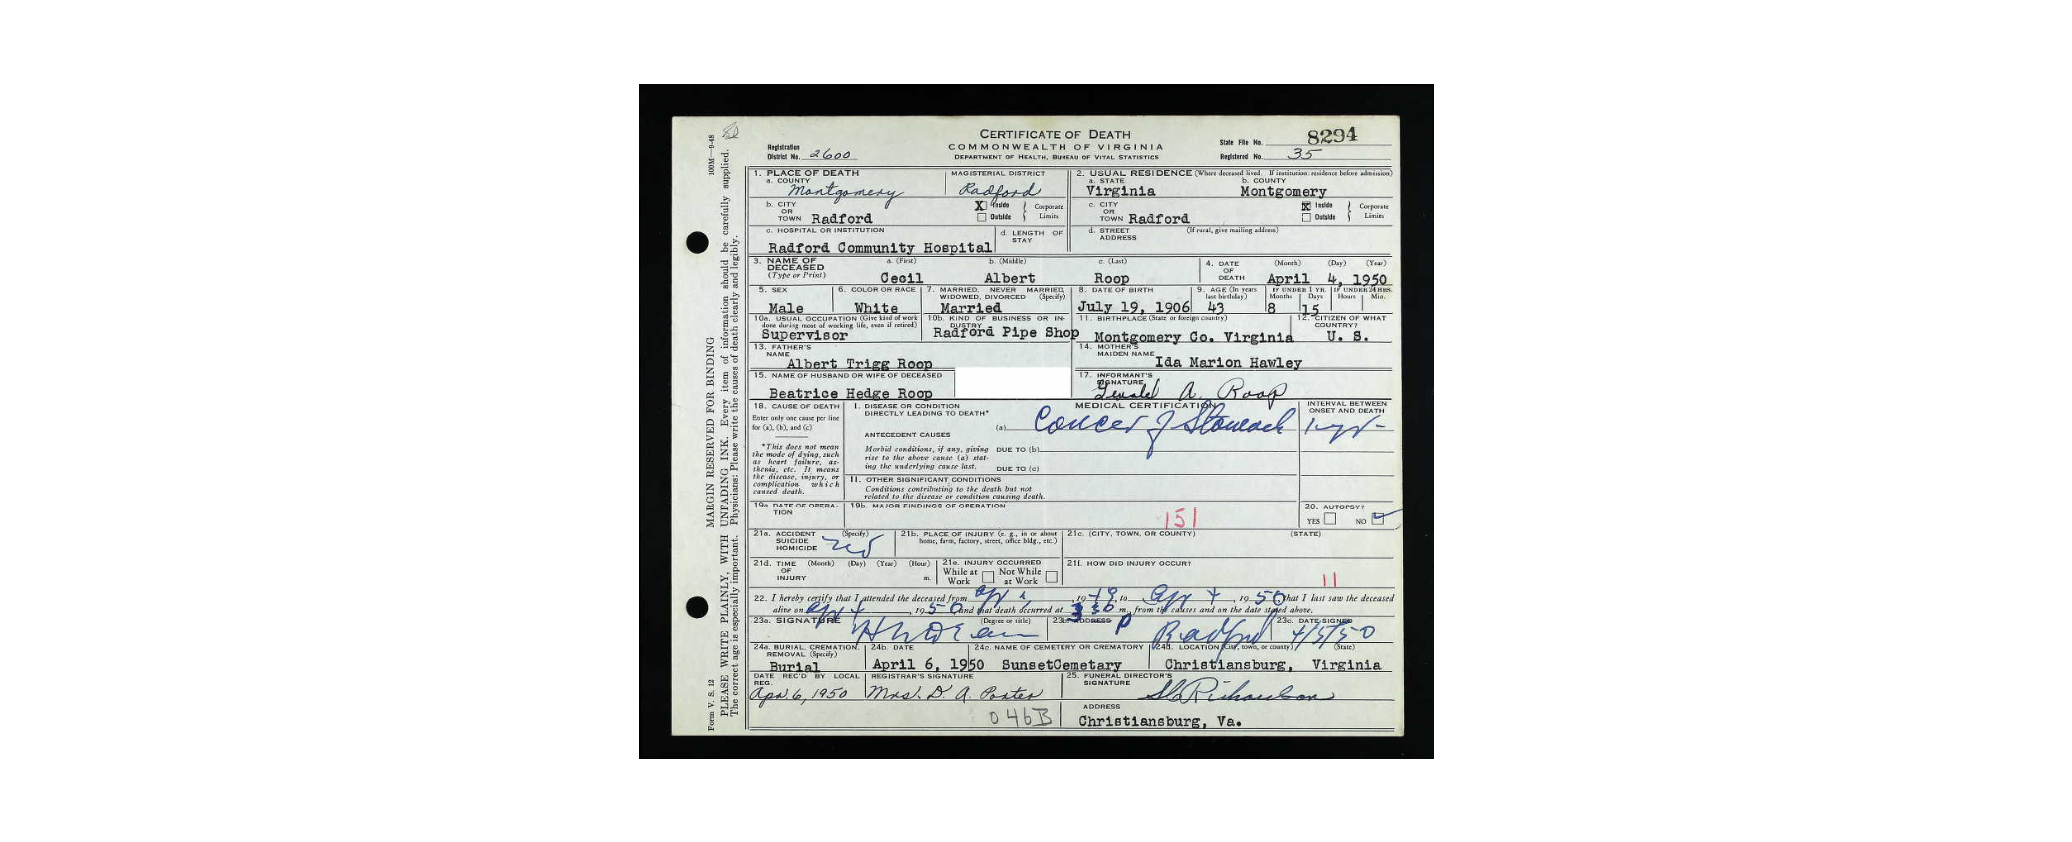 CERTIFICATE OF DEATH
COMMONWEALTH OF VIRGINIA
DEPARTMENT OF HEALTH, BUREAU OF VITAL STATISTICS
Registration District No. 2600
State File No. 8294
Registered No. 35
100M—9-48
MARGIN RESERVED FOR BINDING
PLEASE WRITE PLAINLY, WITH UNFADING INK. Every item of information should be carefully supplied.
The correct age is especially important. Physicians: Please write the causes of death clearly and legibly.
Form V. S. 12
1. PLACE OF DEATH
a. COUNTY Montgomery
MAGISTERIAL DISTRICT Radford
2. USUAL RESIDENCE (Where deceased lived. If institution: residence before admission)
a. STATE Virginia
b. COUNTY Montgomery
b. CITY OR TOWN Radford
X Inside Outside Corporate Limits
c. CITY OR TOWN Radford
X Inside Outside Corporate Limits
c. HOSPITAL OR INSTITUTION
Radford Community Hospital
d. LENGTH OF STAY
d. STREET ADDRESS (If rural, give mailing address)
3. NAME OF DECEASED (Type or Print)
a. (First) Cecil
b. (Middle) Albert
c. (Last) Roop
4. DATE OF DEATH (Month) (Day) (Year)
April 4, 1950
5. SEX Male
6. COLOR OR RACE White
7. MARRIED, NEVER MARRIED, WIDOWED, DIVORCED (Specify)
Married
8. DATE OF BIRTH
July 19, 1906
9. AGE (In years last birthday) 43
IF UNDER 1 YR. Months 8 Days 15
IF UNDER 24 HRS. Hours Min.
10a. USUAL OCCUPATION (Give kind of work done during most of working life, even if retired)
Supervisor
10b. KIND OF BUSINESS OR INDUSTRY
Radford Pipe Shop
11. BIRTHPLACE (State or foreign country)
Montgomery Co. Virginia
12. CITIZEN OF WHAT COUNTRY?
U. S.
13. FATHER'S NAME
Albert Trigg Roop
14. MOTHER'S MAIDEN NAME
Ida Marion Hawley
15. NAME OF HUSBAND OR WIFE OF DECEASED
Beatrice Hedge Roop
17. INFORMANT'S SIGNATURE
A. Roop
18. CAUSE OF DEATH
Enter only one cause per line for (a), (b), and (c)
*This does not mean the mode of dying, such as heart failure, asthenia, etc. It means the disease, injury, or complication which caused death.
MEDICAL CERTIFICATION
INTERVAL BETWEEN ONSET AND DEATH
I. DISEASE OR CONDITION DIRECTLY LEADING TO DEATH*
(a) Cancer of Stomach
1 yr -
ANTECEDENT CAUSES
Morbid conditions, if any, giving rise to the above cause (a) stating the underlying cause last.
DUE TO (b)
DUE TO (c)
II. OTHER SIGNIFICANT CONDITIONS
Conditions contributing to the death but not related to the disease or condition causing death.
19a. DATE OF OPERATION
19b. MAJOR FINDINGS OF OPERATION
151
20. AUTOPSY?
YES NO
21a. ACCIDENT SUICIDE HOMICIDE (Specify)
no
21b. PLACE OF INJURY (e. g., in or about home, farm, factory, street, office bldg., etc.)
21c. (CITY, TOWN, OR COUNTY) (STATE)
21d. TIME OF INJURY (Month) (Day) (Year) (Hour) m.
21e. INJURY OCCURRED
While at Work Not While at Work
21f. HOW DID INJURY OCCUR?
11
22. I hereby certify that I attended the deceased from Apr 1, 1949, to Apr 4, 1950, that I last saw the deceased
alive on Apr 4, 1950, and that death occurred at 3:30 P m., from the causes and on the date stated above.
23a. SIGNATURE (Degree or title)
23b. ADDRESS Radford
23c. DATE SIGNED 4/5/50
24a. BURIAL, CREMATION, REMOVAL (Specify)
Burial
24b. DATE
April 6, 1950
24c. NAME OF CEMETERY OR CREMATORY
SunsetCemetary
24d. LOCATION (City, town, or county) (State)
Christiansburg, Virginia
DATE REC'D BY LOCAL REG.
Apr. 6, 1950
REGISTRAR'S SIGNATURE
Mrs. D. A. Porter
25. FUNERAL DIRECTOR'S SIGNATURE
Richardson
046B
ADDRESS
Christiansburg, Va.